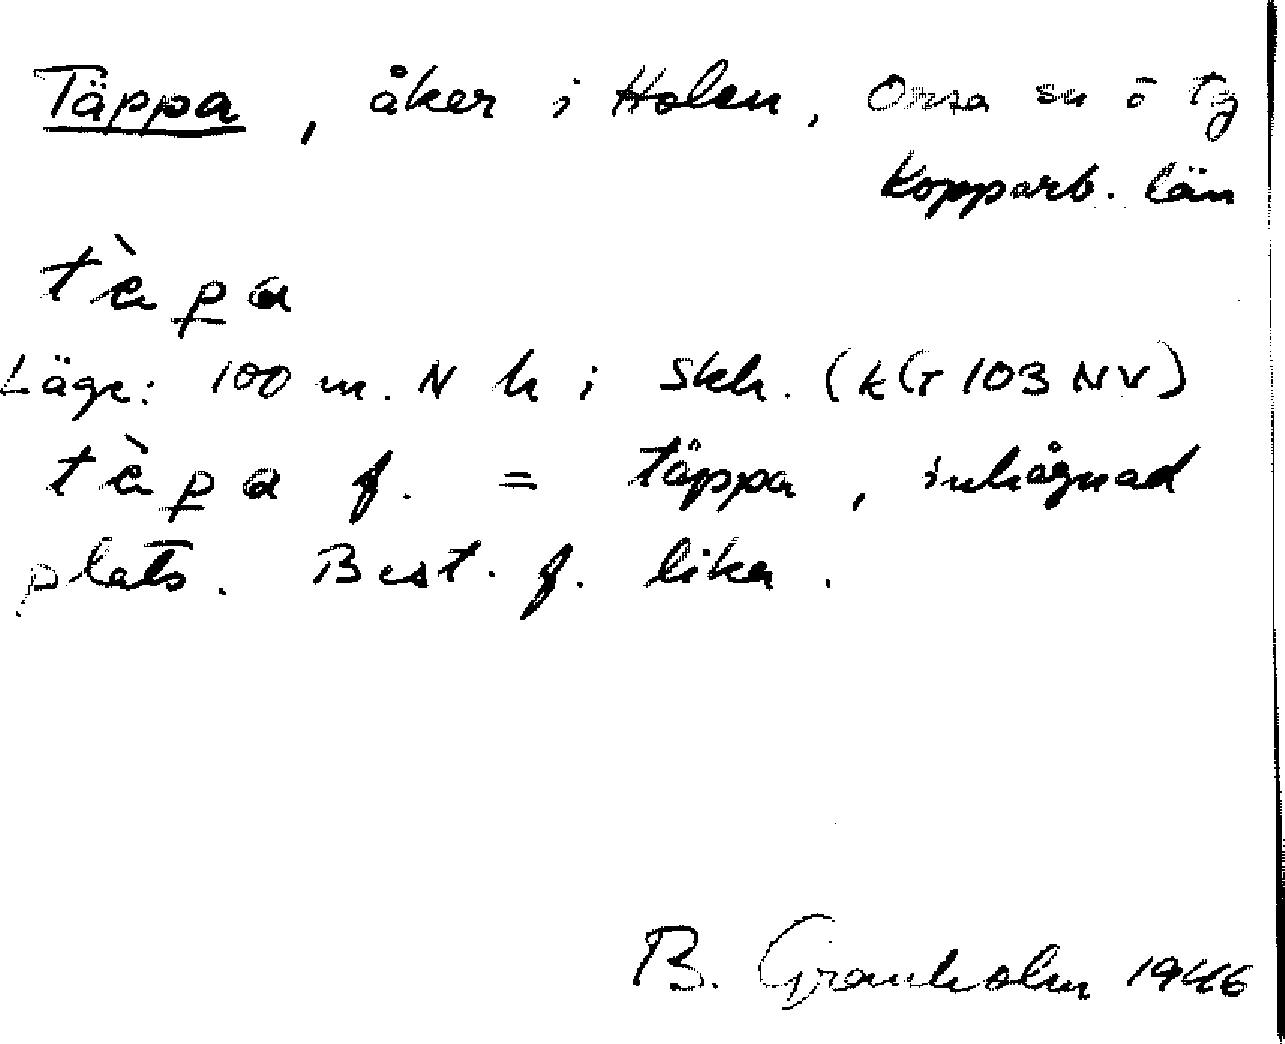 Täppa, åker i Holen, Orsa sn o tg
Kopparb. län
tèpa
Läge: 100 m. N k i Skh. (kG 103 NV)
tèpa f. = täppa, inhägnad
plats. Best. f. lika.
B. Granholm 1946